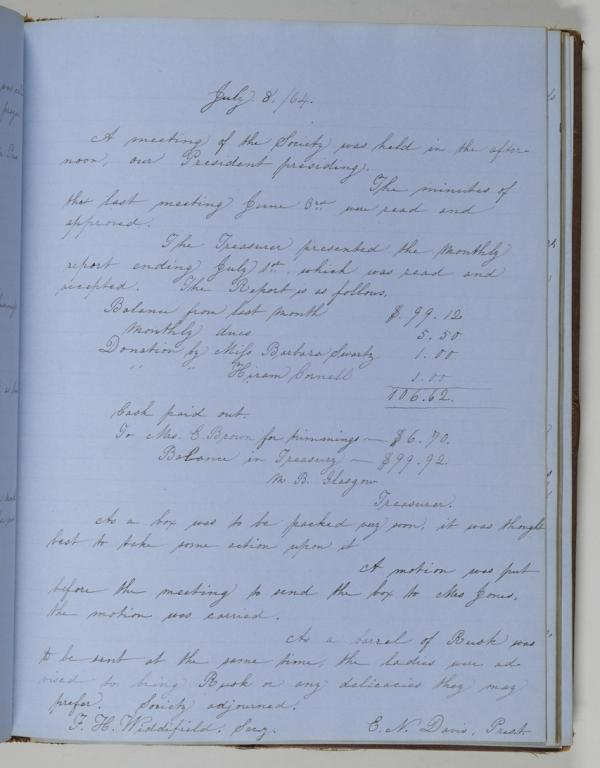 July 8./64.
A meeting of the Society was held in the after
noon, our President presiding.
The minutes of
the last meeting June 3rd were read and
approved.
The Treasurer presented the Monthly
report ending July 1st, which was read and
recepted. The Report is as follows,
Balance from last month $.99.12
Monthly dues 5.50
Donation by Miss Barbara Swartz 1.00
" " Hiram Cornell 1.00
106.62.
Cash paid out.
To Mrs. E. Brown for trimmings — $6.70.
Balance in Treasury — $99.92.
M. B. Glasgow
Treasurer.
As a box was to be packed very soon, it was thought
best to take some action upon it
A motion was put
before the meeting to send the box to Mrs Jones,
the motion was carried.
As a barrel of Rusk was
to be sent at the same time, the ladies were ad-
vised to bring Rusk or any delicacies they may
prefer. Society adjourned.
F. H. Widdifield. Secy. E. N. Davis, Prest.